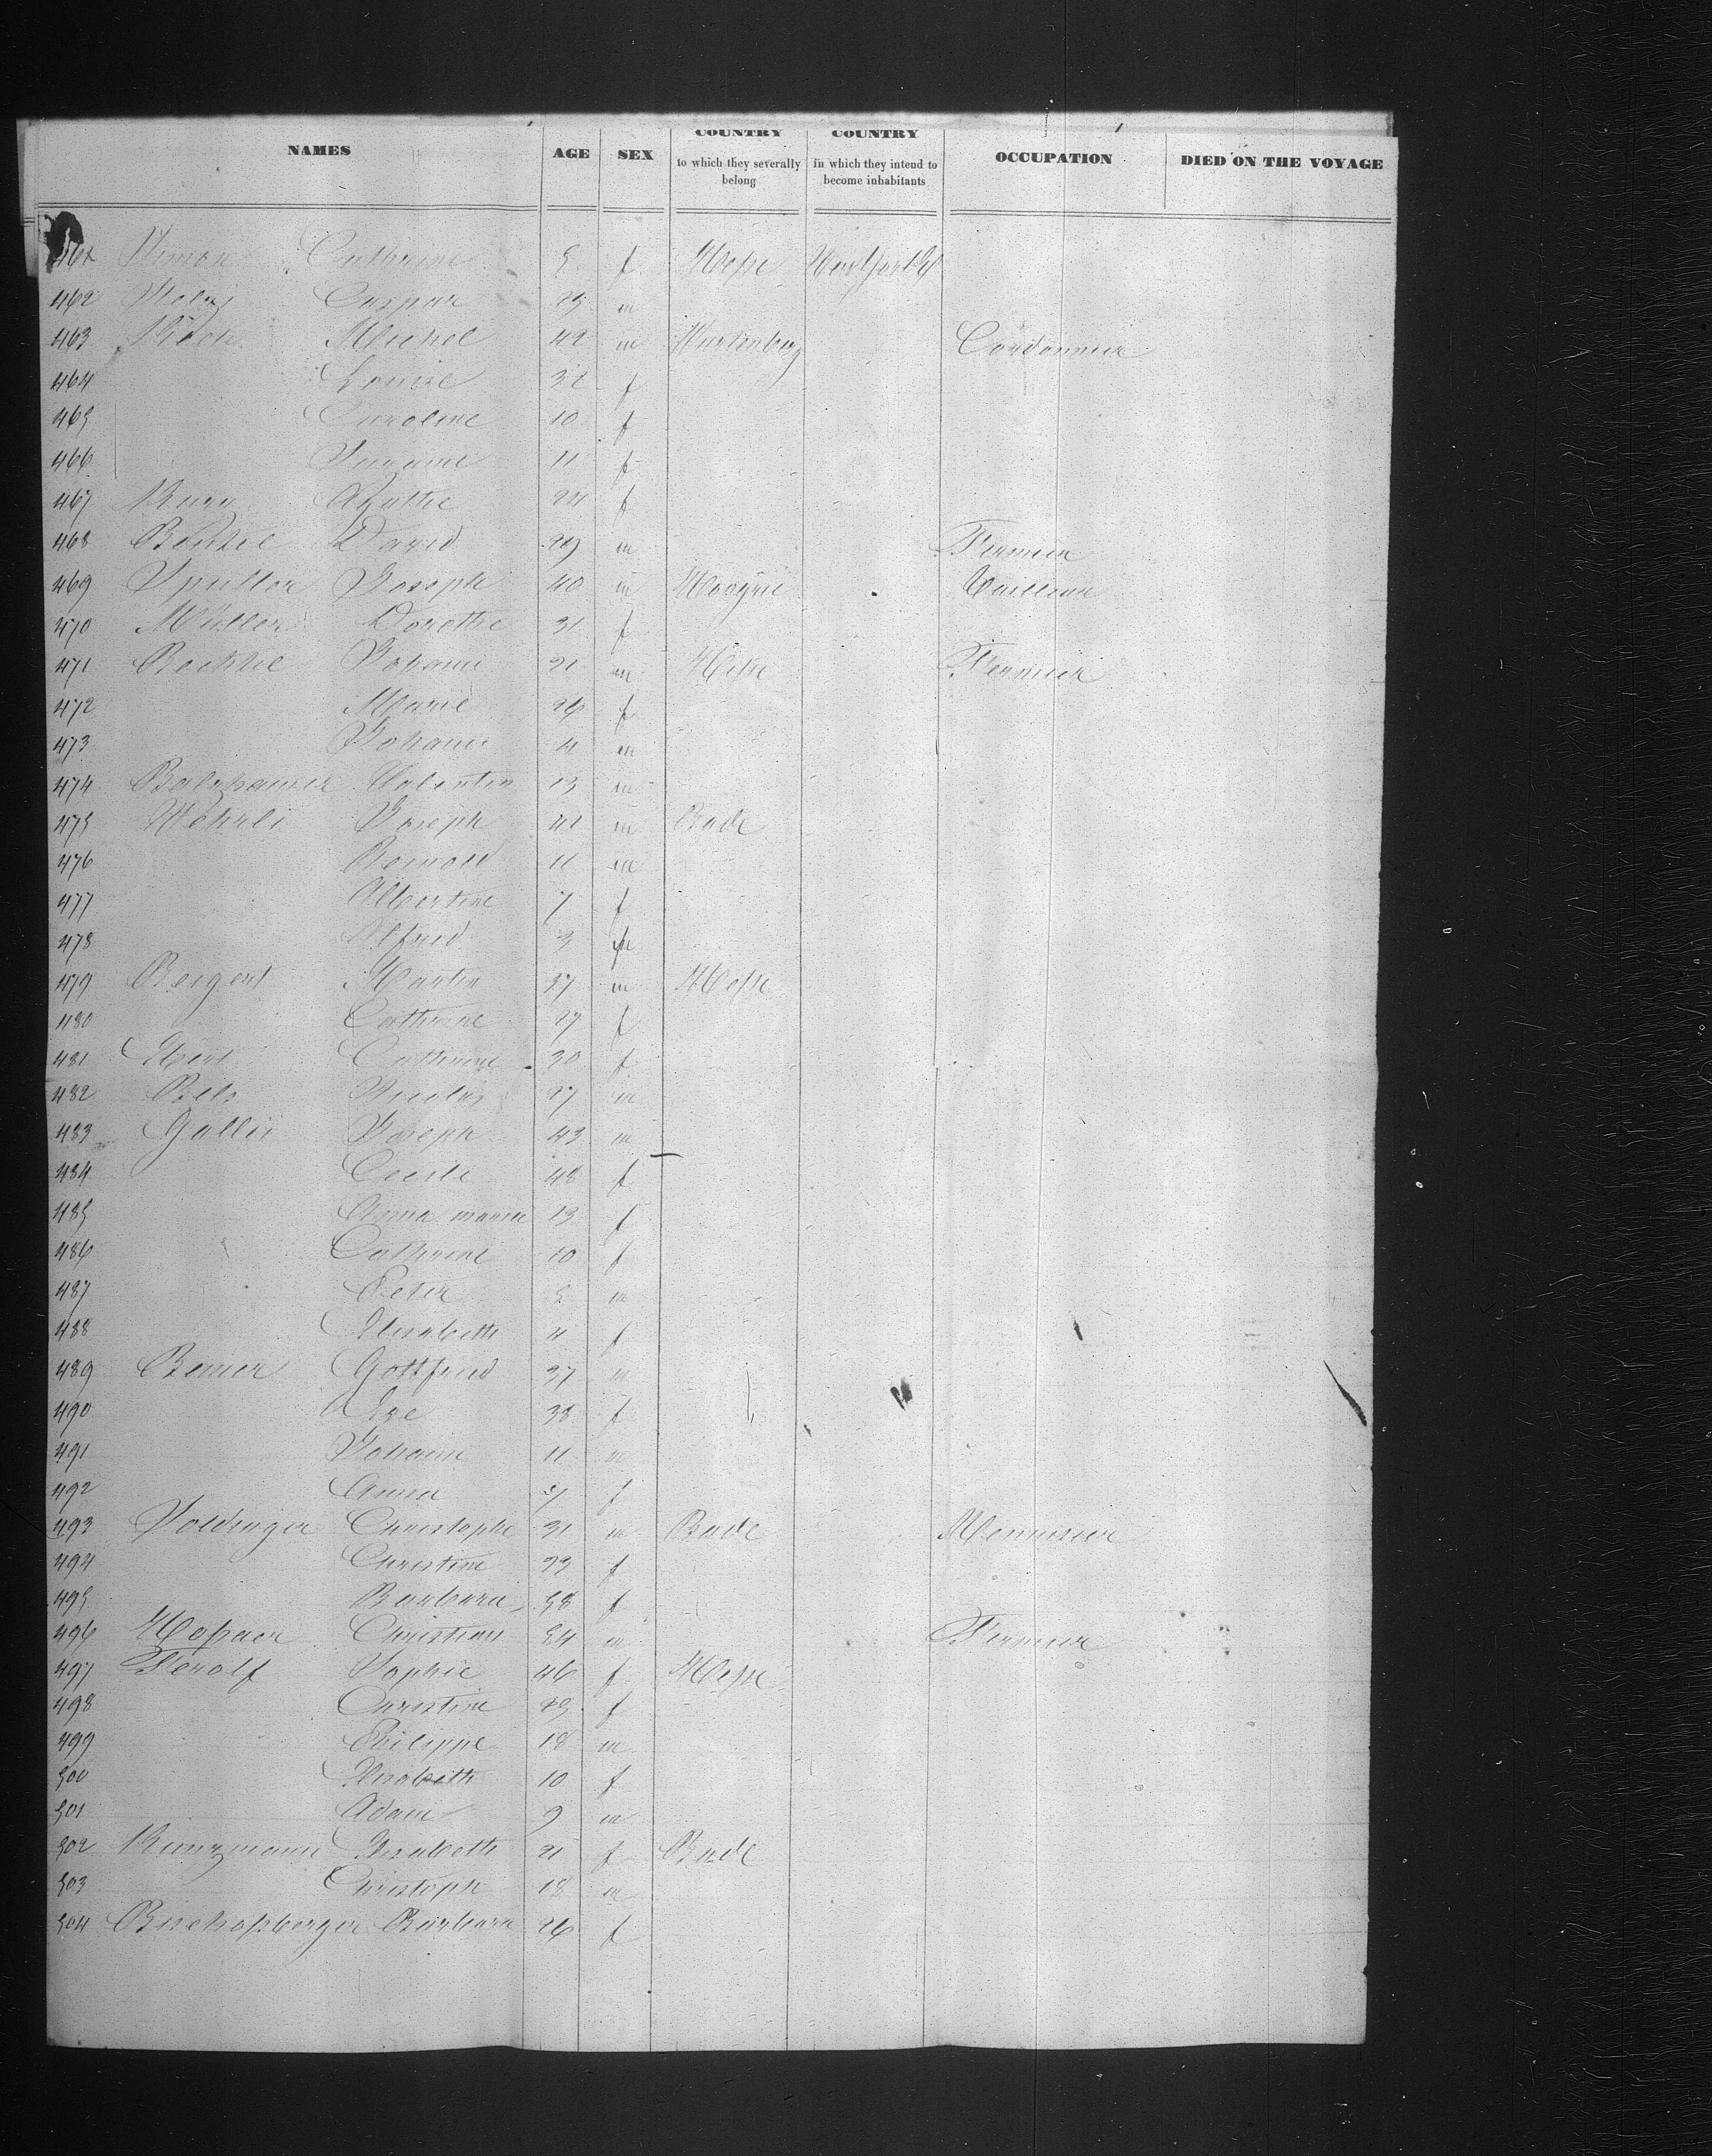 NAMES AGE SEX COUNTRY to which they severally belong COUNTRY in which they intend to become inhabitants OCCUPATION DIED ON THE VOYAGE
461 Simon Catherine 5 f Hesse
462 Caspar 25 m
463 Michel 42 m Wurtemberg Cordonnier
464 Louise 32 f
465 Caroline 10 f
466 11 f
467 Agathe 24 f
468 David 29 m Fermier
469 Joseph 40 m Tailleur
470 Müller Dorothe 31 f
471 Bechtel Johann 21 m Hesse Fermier
472 Marie 26 f
473 Johann 4 m
474 Valentin 13 m
475 Wehrli Joseph 41 m Bade
476 11 m
477 Albertine 7 f
478 Alfred 3 m
479 Martin 37 m Hesse
480 Catherine 27 f
481 Catherine 30 f
482 Nicolas 27 m
483 Joseph 43 m
484 Cecile 48 f
485 Anna maria 13 f
486 Catherine 10 f
487 Peter 5 m
488 Elisabeth 4 f
489 Gottfried 37 m
490 Eve 38 f
491 Johann 11 m
492 Anna f
493 Christophe 31 m Bade Menuisier
494 Christine 23 f
495 Barbara 58 f
496 Christian 54 m Fermier
497 Sophie 46 f Hesse
498 Christine f
499 Philippe 18 m
500 Elisabeth 10 f
501 Adam 9 m
502 Kunzmann Elisabeth 21 f Bade
503 Christoph 18 m
504 Bischofsberger Barbara 26 f